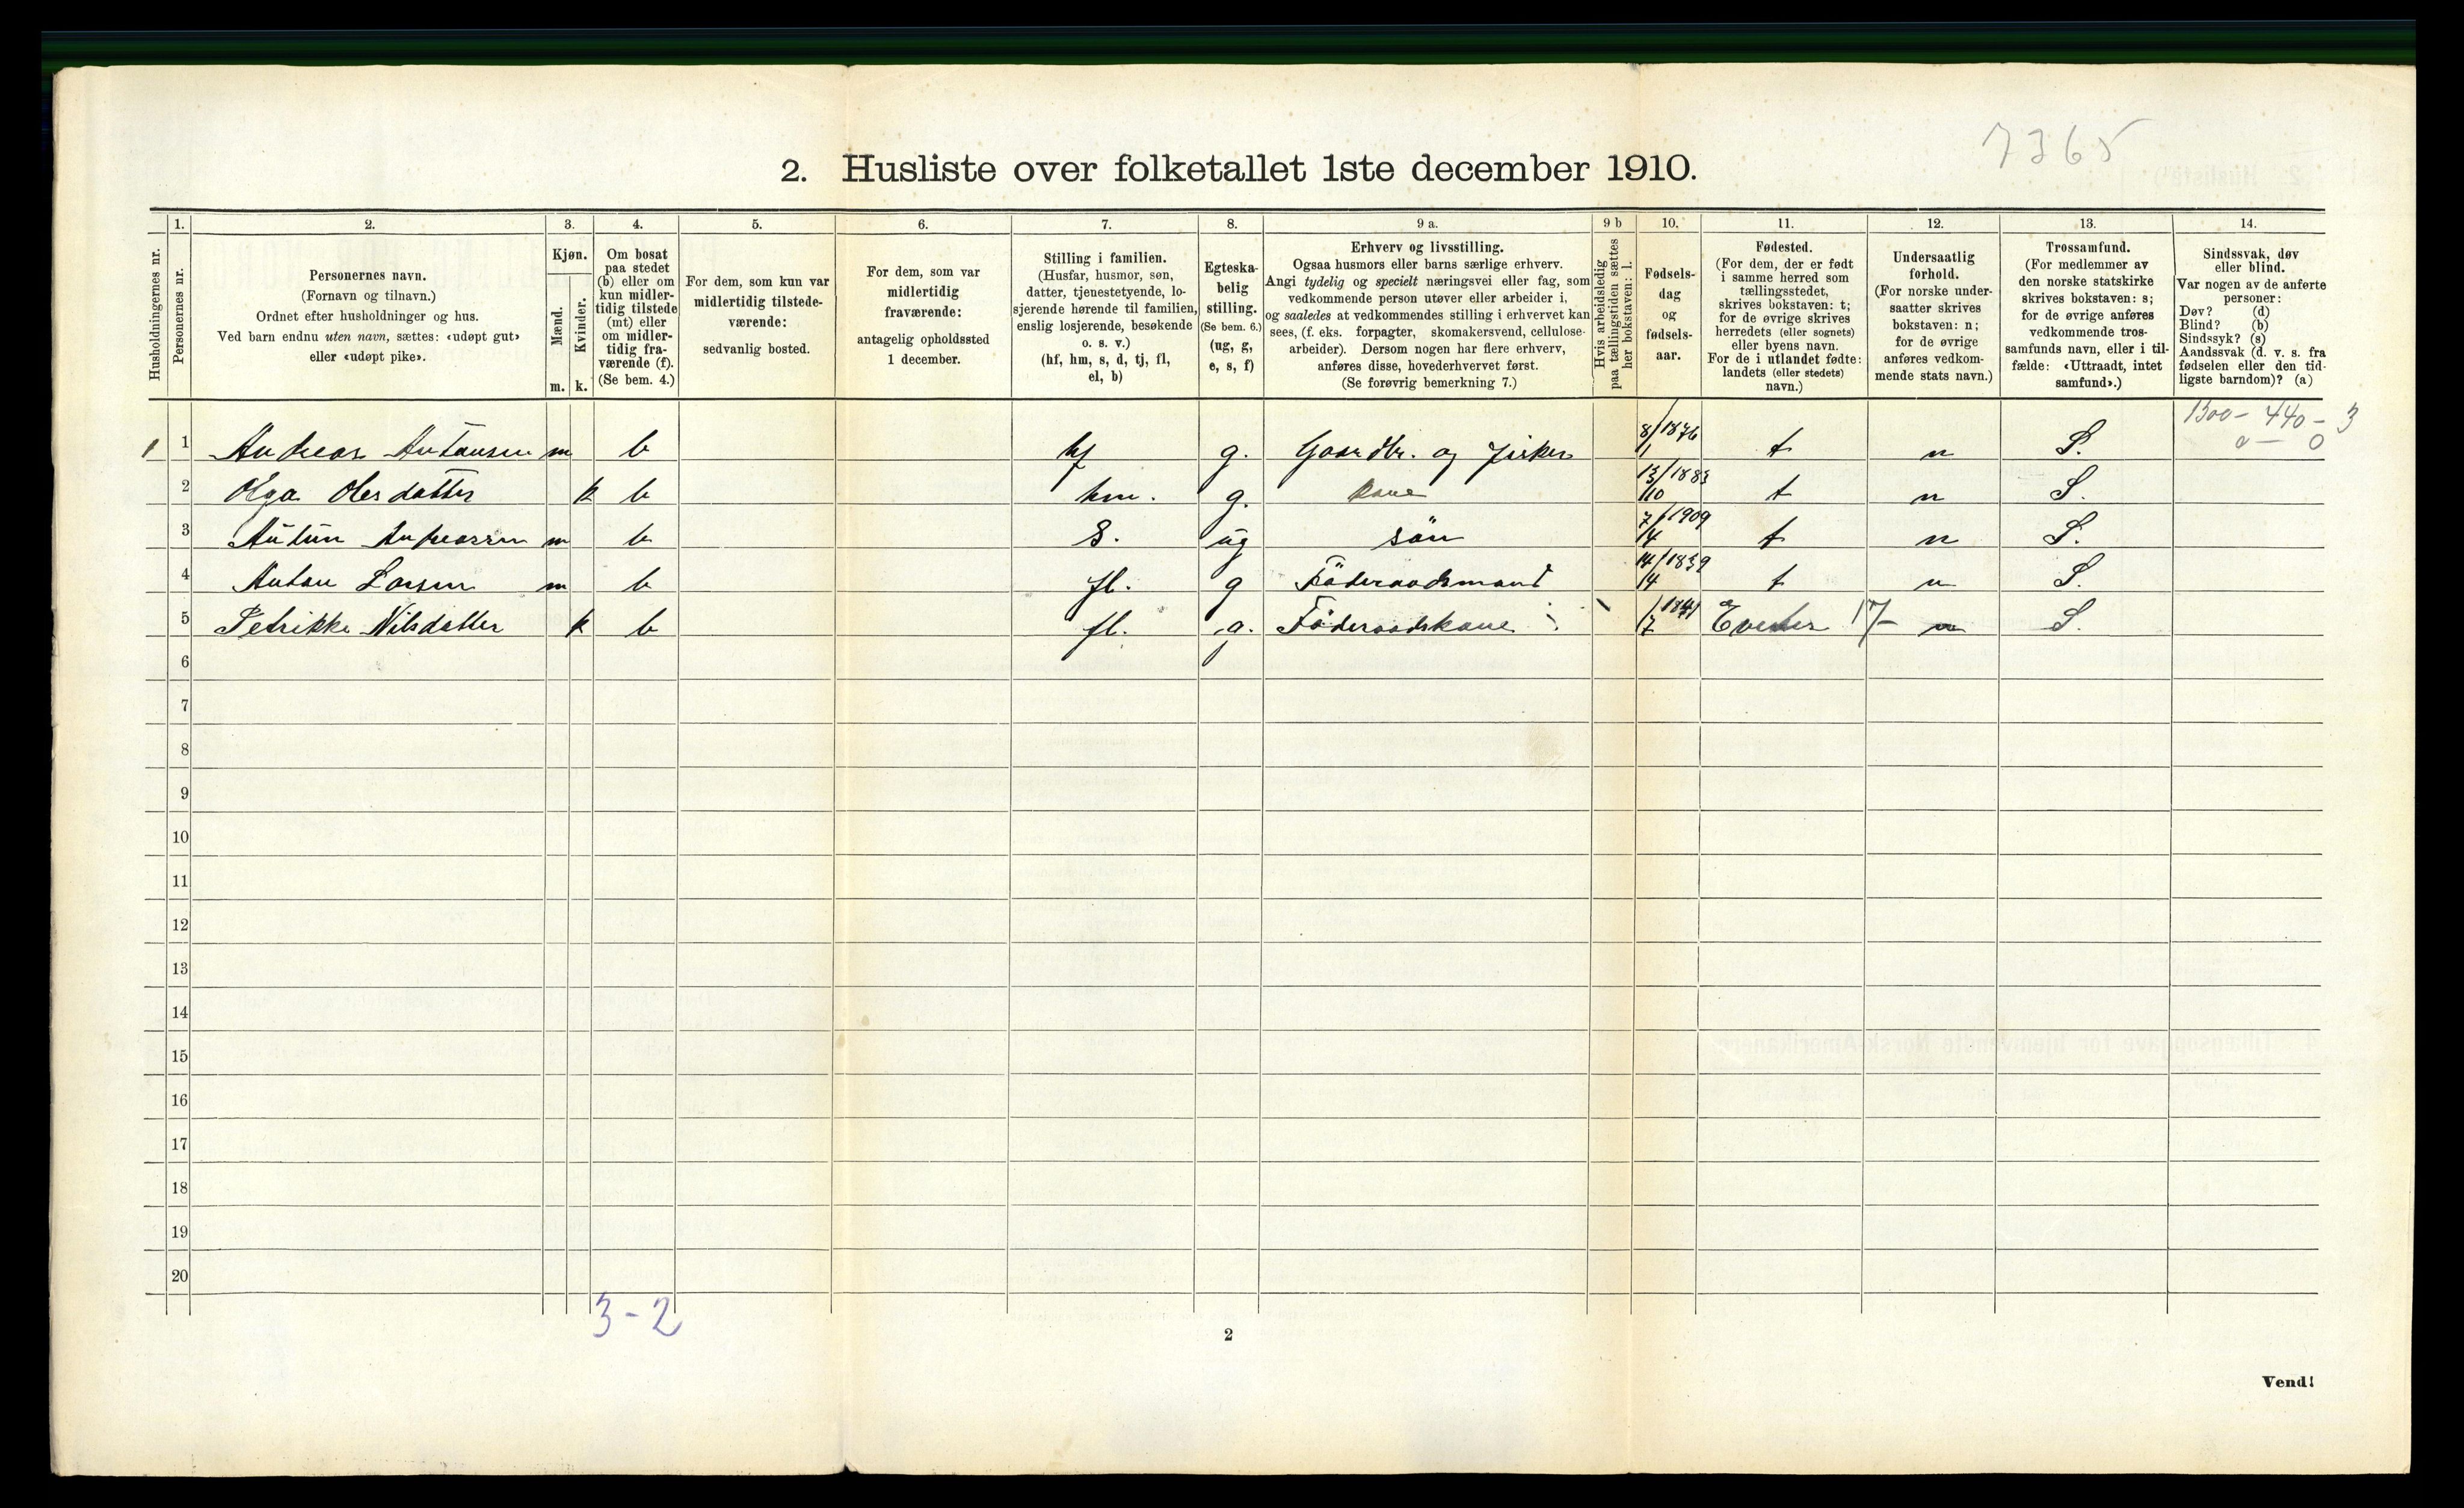 7365
2. Husliste over folketallet 1ste december 1910.
Husholdningernes nr.
1.
Personernes nr.
2.
Personernes navn.
(Fornavn og tilnavn.)
Ordnet efter husholdninger og hus.
Ved barn endnu uten navn, sættes: «udøpt gut»
eller «udøpt pike».
3.
Kjøn.
Mænd.
m.
Kvinder.
k.
4.
Om bosat
paa stedet
(b) eller om
kun midler-
tidig tilstede
(mt) eller
om midler-
tidig fra-
værende (f).
(Se bem. 4.)
5.
For dem, som kun var
midlertidig tilstede-
værende:
sedvanlig bosted.
6.
For dem, som var
midlertidig
fraværende:
antagelig opholdssted
1 december.
7.
Stilling i familien.
(Husfar, husmor, søn,
datter, tjenestetyende, lo-
sjerende hørende til familien,
enslig losjerende, besøkende
o. s. v.)
(hf, hm, s, d, tj, fl,
el, b)
8.
Egteska-
belig
stilling.
(Se bem. 6.)
(ug, g,
e, s, f)
9 a.
Erhverv og livsstilling.
Ogsaa husmors eller barns særlige erhverv.
Angi tydelig og specielt næringsvei eller fag, som
vedkommende person utøver eller arbeider i,
og saaledes at vedkommendes stilling i erhvervet kan
sees, (f. eks. forpagter, skomakersvend, cellulose-
arbeider). Dersom nogen har flere erhverv,
anføres disse, hovederhvervet først.
(Se forøvrig bemerkning 7.)
9 b
Hvis arbeidsledig
paa tællingstiden sættes
her bokstaven: l.
10.
Fødsels-
dag
og
fødsels-
aar.
11.
Fødested.
(For dem, der er født
i samme herred som
tællingsstedet,
skrives bokstaven: t;
for de øvrige skrives
herredets (eller sognets)
eller byens navn.
For de i utlandet fødte:
landets (eller stedets)
navn.)
12.
Undersaatlig
forhold.
(For norske under-
saatter skrives
bokstaven: n;
for de øvrige
anføres vedkom-
mende stats navn.)
13.
Trossamfund.
(For medlemmer av
den norske statskirke
skrives bokstaven: s;
for de øvrige anføres
vedkommende tros-
samfunds navn, eller i til-
fælde: «Uttraadt, intet
samfund».)
14.
Sindssvak, døv
eller blind.
Var nogen av de anførte
personer:
Døv? (d)
Blind? (b)
Sindssyk? (s)
Aandssvak (d. v. s. fra
fødselen eller den tid-
ligste barndom)? (a)
1300 - 440 - 3
0 - 0
1 1 Andreas Antonsen m b hf g. Gaardbr. og fisker 8/1 1876 t n S.
2 Olga Olesdatter k b hm. g. kone 13/10 1883 t n S.
3 Anton Andreassen m b S. ug sön 7/14 1909 t n S.
4 Anton Larsen m b fl. g Föderaadsmand 14/4 1839 t n S.
5 Petrikke Nilsdatter k b fl. g. Föderaadskone 1/7 1841 Evenes 17- n S.
6
7
8
9
10
11
12
13
14
15
16
17
18
19
20
3-2
2
Vend!